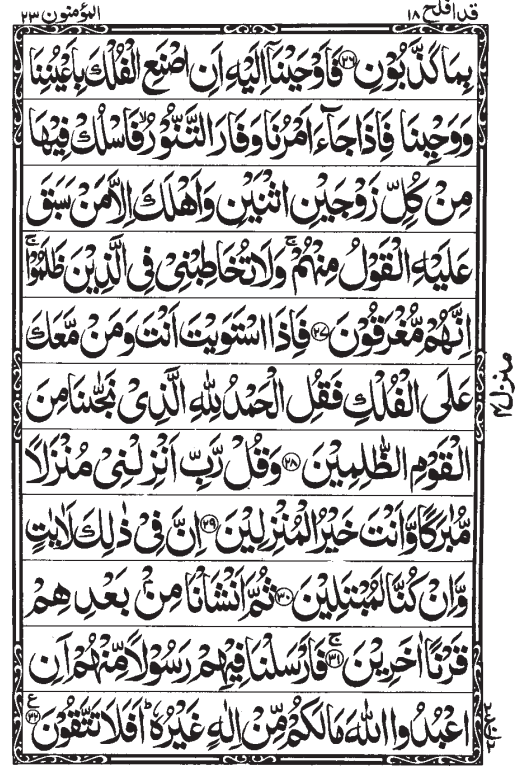 قد افلح ١٨
المؤمنون ٢٣
بِمَا كَذَّبُوْنِ ﴿٢٦﴾ فَاَوْحَيْنَاۤ اِلَيْهِ اَنِ اصْنَعِ الْفُلْكَ بِاَعْيُنِنَا
وَوَحْيِنَا فَاِذَا جَآءَ اَمْرُنَا وَفَارَ التَّنُّوْرُ ۙ فَاسْلُكْ فِيْهَا
مِنْ كُلٍّ زَوْجَيْنِ اثْنَيْنِ وَاَهْلَكَ اِلَّا مَنْ سَبَقَ
عَلَيْهِ الْقَوْلُ مِنْهُمْ ۚ وَلَا تُخَاطِبْنِيْ فِي الَّذِيْنَ ظَلَمُوْا ۚ
اِنَّهُمْ مُّغْرَقُوْنَ ﴿٢٧﴾ فَاِذَا اسْتَوَيْتَ اَنْتَ وَمَنْ مَّعَكَ
عَلَى الْفُلْكِ فَقُلِ الْحَمْدُ لِلّٰهِ الَّذِيْ نَجّٰىنَا مِنَ
الْقَوْمِ الظّٰلِمِيْنَ ﴿٢٨﴾ وَقُلْ رَّبِّ اَنْزِلْنِيْ مُنْزَلًا
مُّبٰرَكًا وَّاَنْتَ خَيْرُ الْمُنْزِلِيْنَ ﴿٢٩﴾ اِنَّ فِيْ ذٰلِكَ لَاٰيٰتٍ
وَّاِنْ كُنَّا لَمُبْتَلِيْنَ ﴿٣٠﴾ ثُمَّ اَنْشَاْنَا مِنْۢ بَعْدِهِمْ
قَرْنًا اٰخَرِيْنَ ﴿٣١﴾ ۚ فَاَرْسَلْنَا فِيْهِمْ رَسُوْلًا مِّنْهُمْ اَنِ
اعْبُدُوا اللّٰهَ مَا لَكُمْ مِّنْ اِلٰهٍ غَيْرُهٗ ؕ اَفَلَا تَتَّقُوْنَ ﴿٣٢﴾ ع
منزل ٤